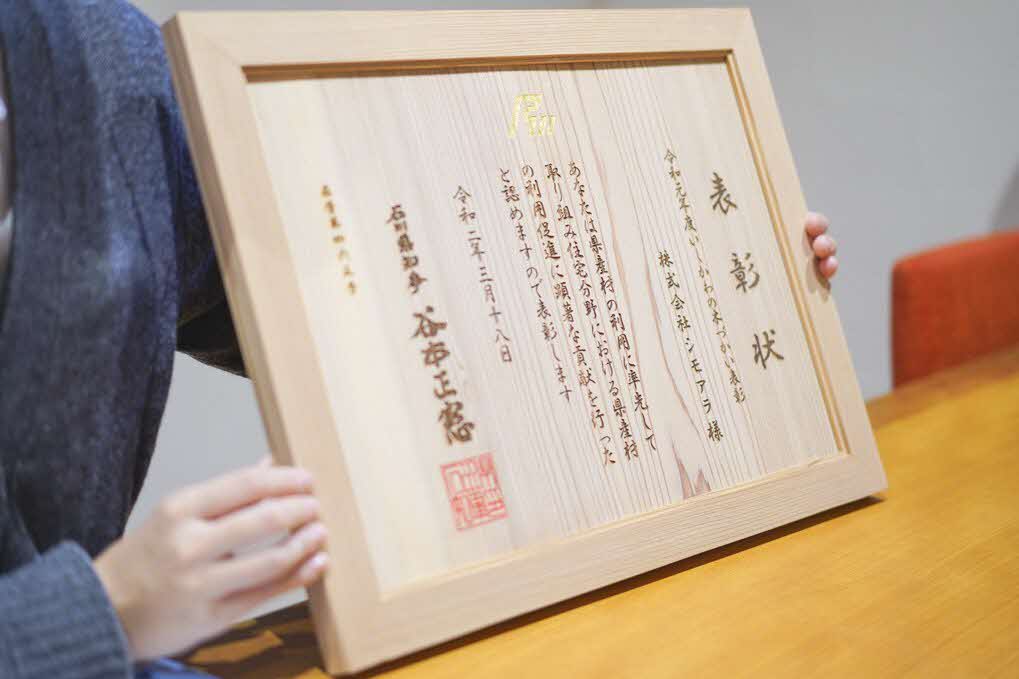 表彰状
令和元年度いしかわの木づかい表彰
株式会社シモアラ様
あなたは県産材の利用に率先して
取り組み住宅分野における県産材
の利用促進に顕著な貢献を行った
と認めますので表彰します
令和二年三月十八日
石川県知事 谷本正憲